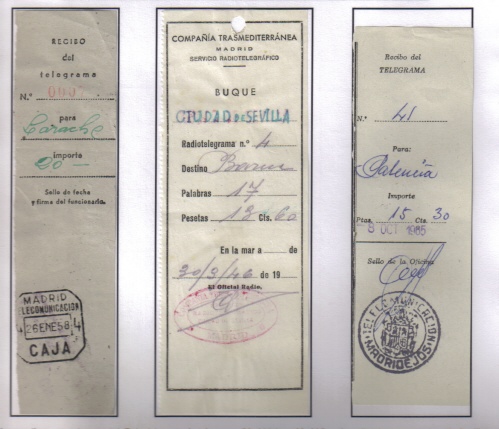 RECIBO
del
telegrama
N.º 000
para
Larache
importe
20 —
Sello de fecha
y firma del funcionario.
MADRID
TELECOMUNICACION
4 26ENE58 4
CAJA
COMPAÑÍA TRASMEDITERRÁNEA
MADRID
SERVICIO RADIOTELEGRÁFICO
BUQUE
CIUDAD DE SEVILLA
Radiotelegrama n.º 4
Destino
Palabras 17
Pesetas 18 Cts. 60
En la mar a de
30/3/46 de 19
El Oficial Radio,
Recibo del
TELEGRAMA
N.º 41
Para:
Palencia
Importe
Ptas. 15 Cts. 30
8 OCT 1965
Sello de la Oficina
TELECOMUNICACION
MADRIDEJOS